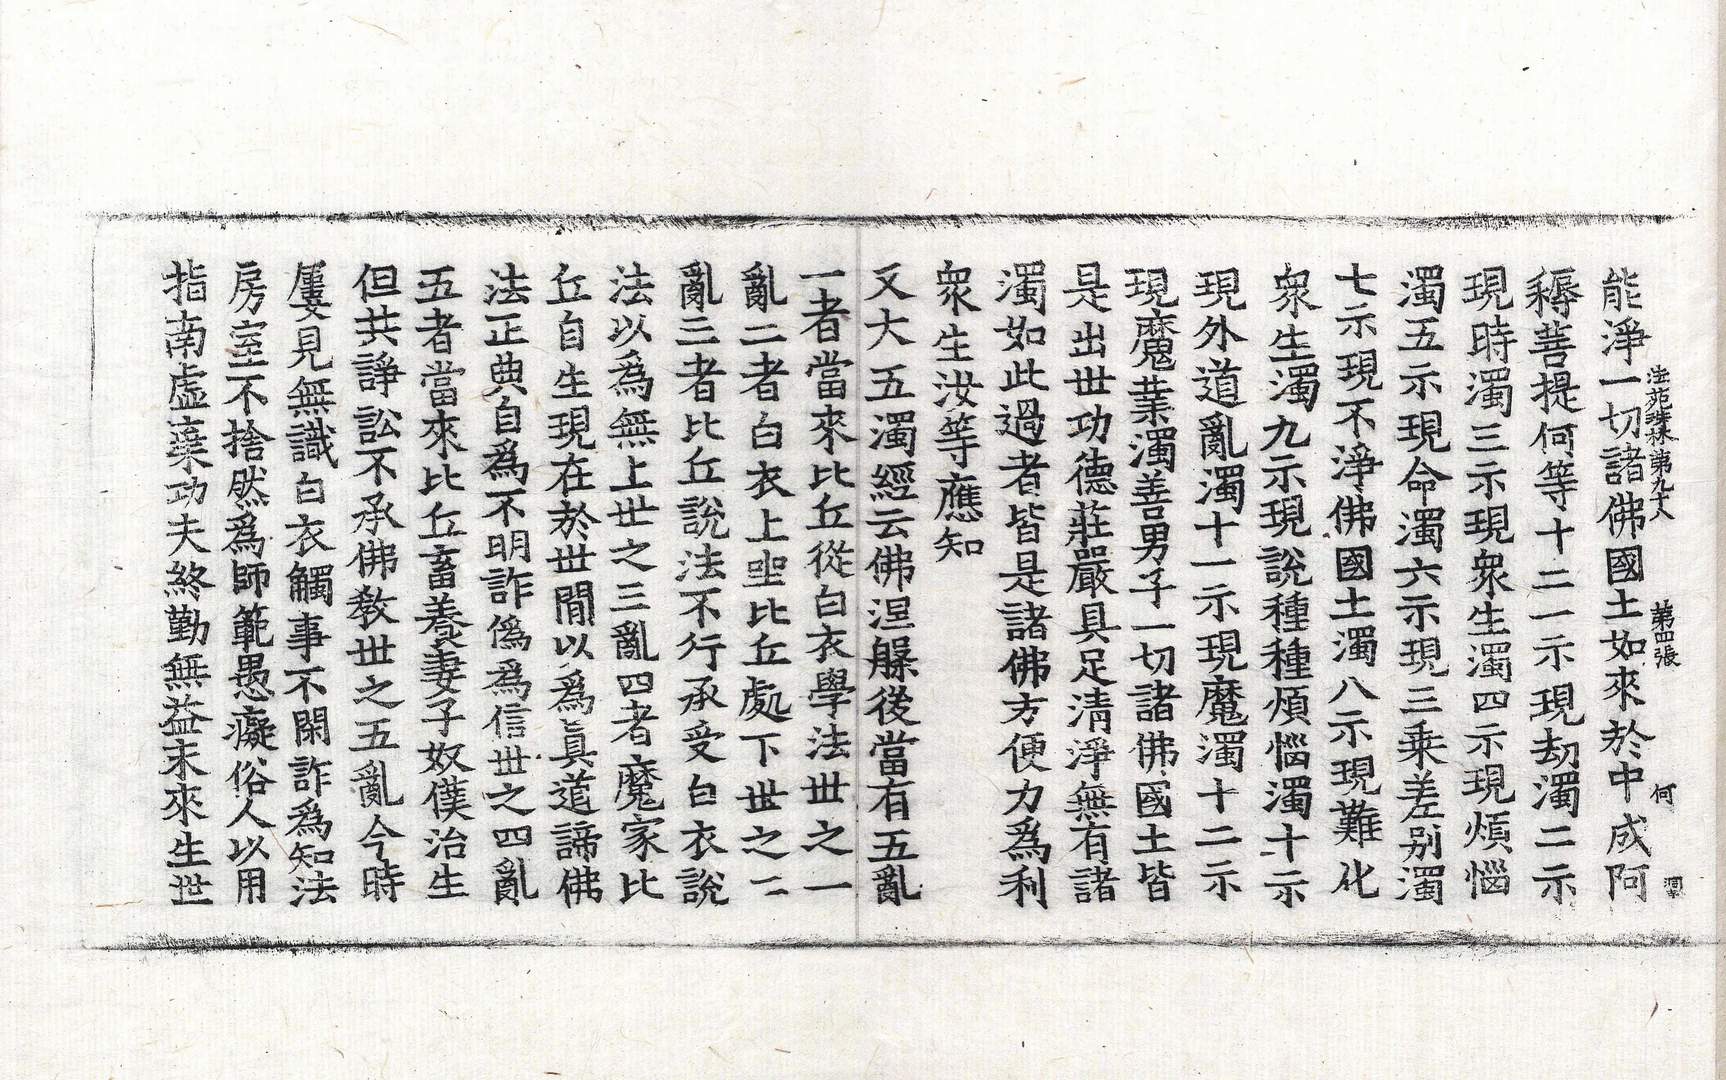 法苑珠林第九十八 第四張 何
能淨一切諸佛國土如來於中成阿
耨菩提何等十二一示現劫濁二示
現時濁三示現衆生濁四示現煩惱
濁五示現命濁六示現三乘差别濁
七示現不淨佛國土濁八示現難化
衆生濁九示現說種種煩惱濁十示
現外道亂濁十一示現魔濁十二示
現魔業濁善男子一切諸佛國土皆
是出世功德莊嚴具足清淨無有諸
濁如此過者皆是諸佛方便力爲利
衆生汝等應知
又大五濁經云佛涅槃後當有五亂
一者當來比丘從白衣學法世之一
亂二者白衣上坐比丘處下世之二
亂三者比丘說法不行承受白衣說
法以爲無上世之三亂四者魔家比
丘自生現在於世間以爲眞道諦佛
法正典自爲不明詐僞爲信世之四亂
五者當來比丘畜養妻子奴僕治生
但共諍訟不承佛教世之五亂今時
屢見無識白衣觸事不閑詐爲知法
房室不捨然爲師範愚癡俗人以用
指南虚棄功夫終勤無益未來生世